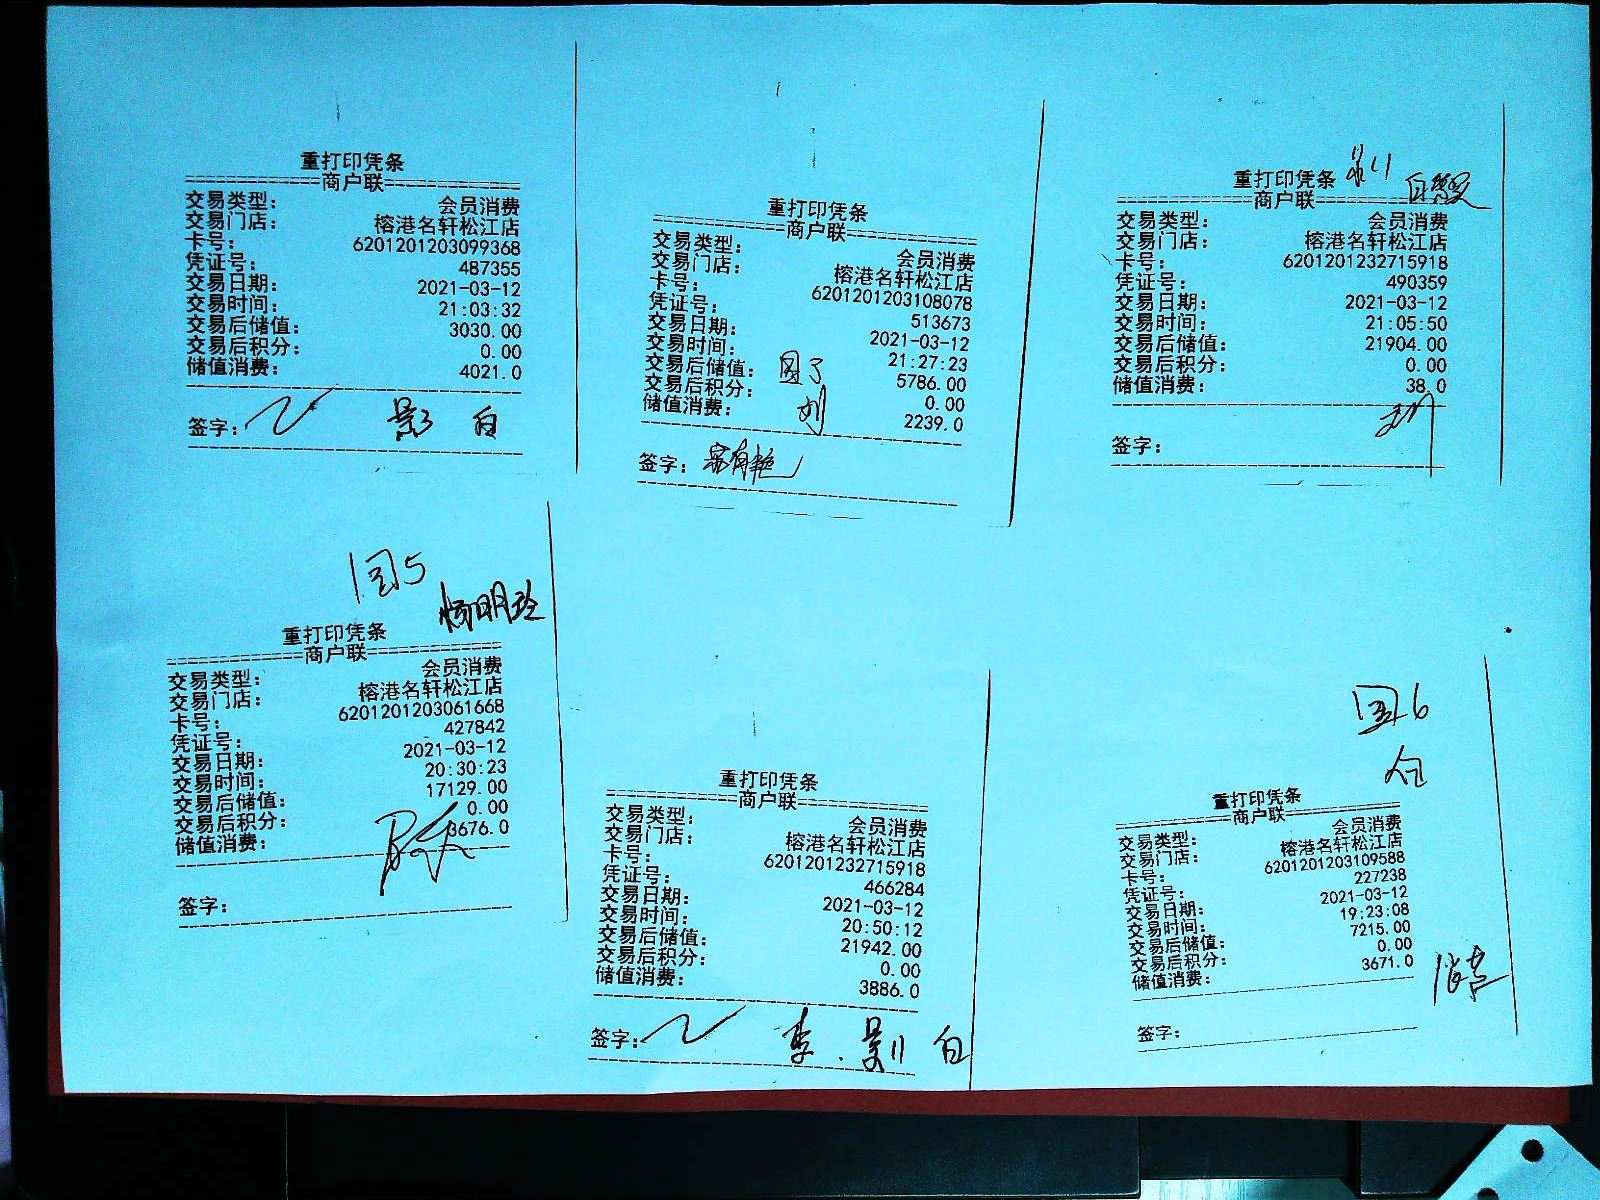 重打印凭条
==========商户联==========
交易类型： 会员消费
交易门店： 榕港名轩松江店
卡号： 6201201203099368
凭证号： 487355
交易日期： 2021-03-12
交易时间： 21:03:32
交易后储值： 3030.00
交易后积分： 0.00
储值消费： 4021.0
签字：
白
重打印凭条
==========商户联==========
交易类型： 会员消费
交易门店： 榕港名轩松江店
卡号： 6201201203108078
凭证号： 513673
交易日期： 2021-03-12
交易时间： 21:27:23
交易后储值： 5786.00
交易后积分： 0.00
储值消费： 2239.0
刘
签字：
重打印凭条
==========商户联==========
交易类型： 会员消费
交易门店： 榕港名轩松江店
卡号： 6201201232715918
凭证号： 490359
交易日期： 2021-03-12
交易时间： 21:05:50
交易后储值： 21904.00
交易后积分： 0.00
储值消费： 38.0
签字：
杨明玲
重打印凭条
==========商户联==========
交易类型： 会员消费
交易门店： 榕港名轩松江店
卡号： 6201201203061668
凭证号： 427842
交易日期： 2021-03-12
交易时间： 20:30:23
交易后储值： 17129.00
交易后积分： 0.00
储值消费： 3676.0
签字：
重打印凭条
==========商户联==========
交易类型： 会员消费
交易门店： 榕港名轩松江店
卡号： 6201201232715918
凭证号： 466284
交易日期： 2021-03-12
交易时间： 20:50:12
交易后储值： 21942.00
交易后积分： 0.00
储值消费： 3886.0
签字： 李 白
重打印凭条
==========商户联==========
交易类型： 会员消费
交易门店： 榕港名轩松江店
卡号： 6201201203109588
凭证号： 227238
交易日期： 2021-03-12
交易时间： 19:23:08
交易后储值： 7215.00
交易后积分： 0.00
储值消费： 3671.0
签字：